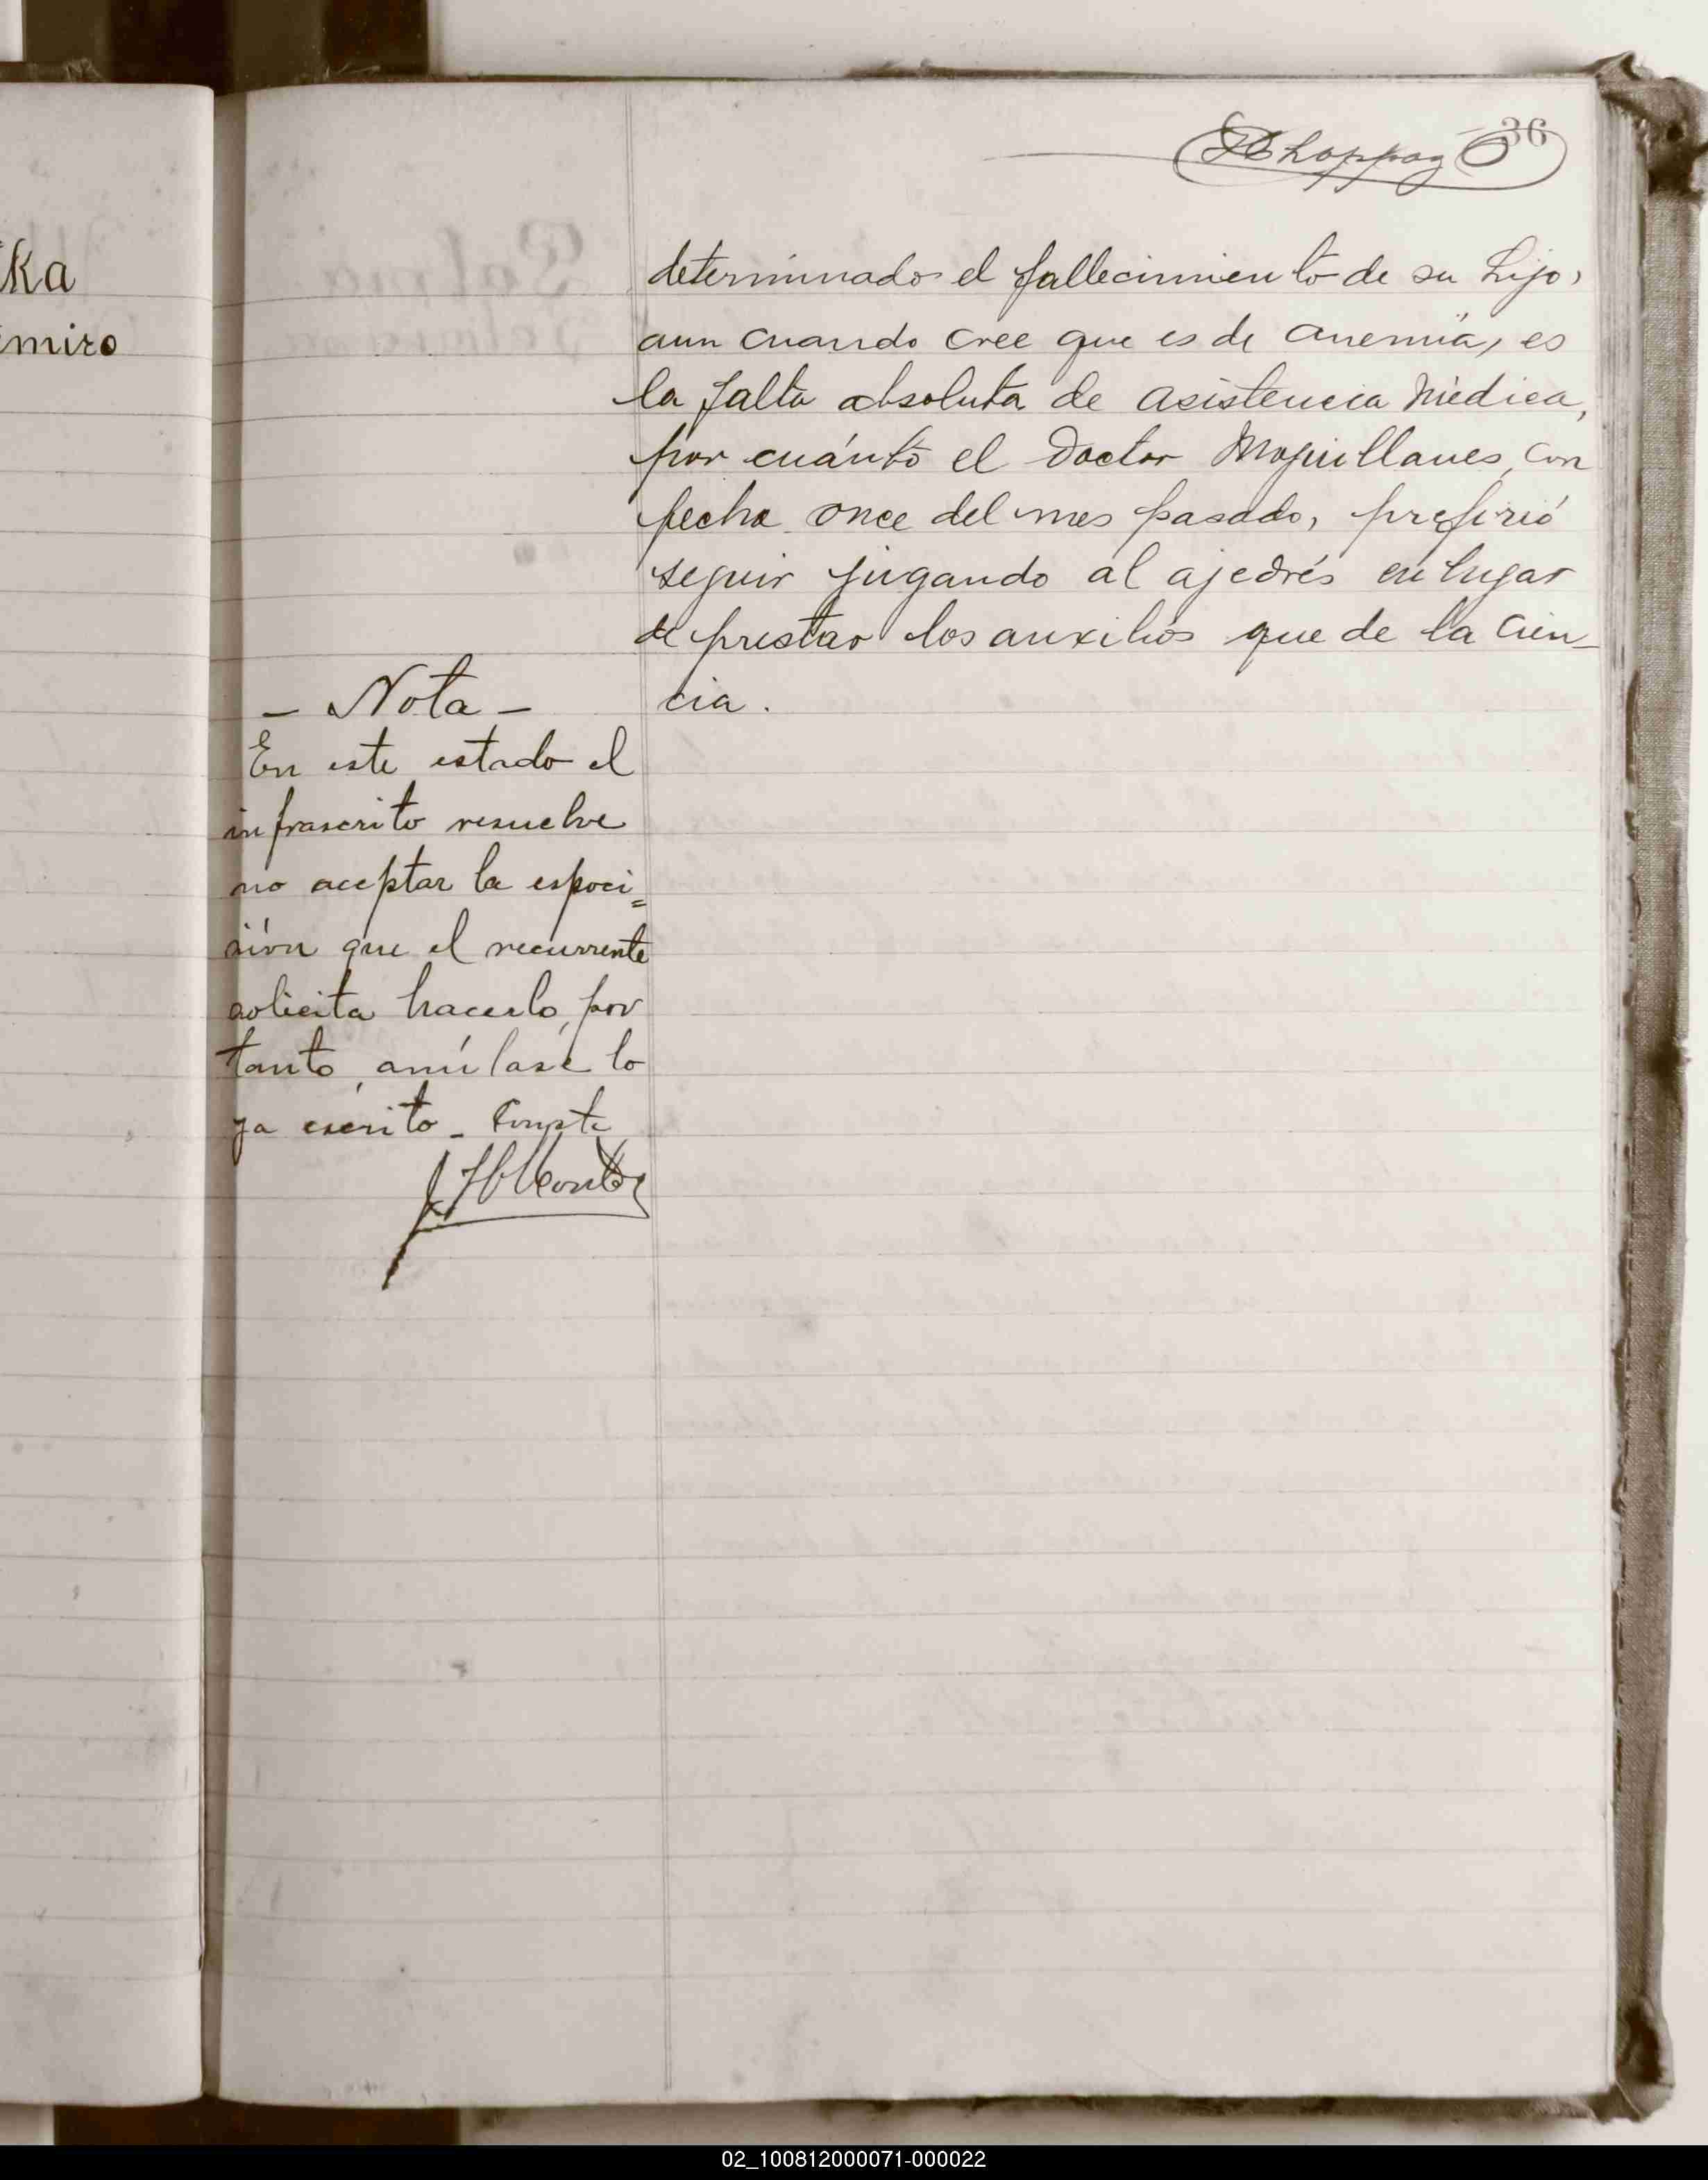 36
ka
miro
determinado el fallecimiento de su hijo,
aun cuando cree que es de anemia, es
la falta absoluta de asistencia médica,
por cuánto el Doctor Moguillanes, con
fecha once del mes pasado, prefirió
seguir jugando al ajedrés en lugar
de prestar los auxilios que de la cien-
cia.
- Nota -
En este estado el
infrascrito resuelve
no aceptar la espoci=
sión que el recurrente
solicita hacerlo, por
tanto, anúlase lo
ya escrito - Conste
02_100812000071-000022